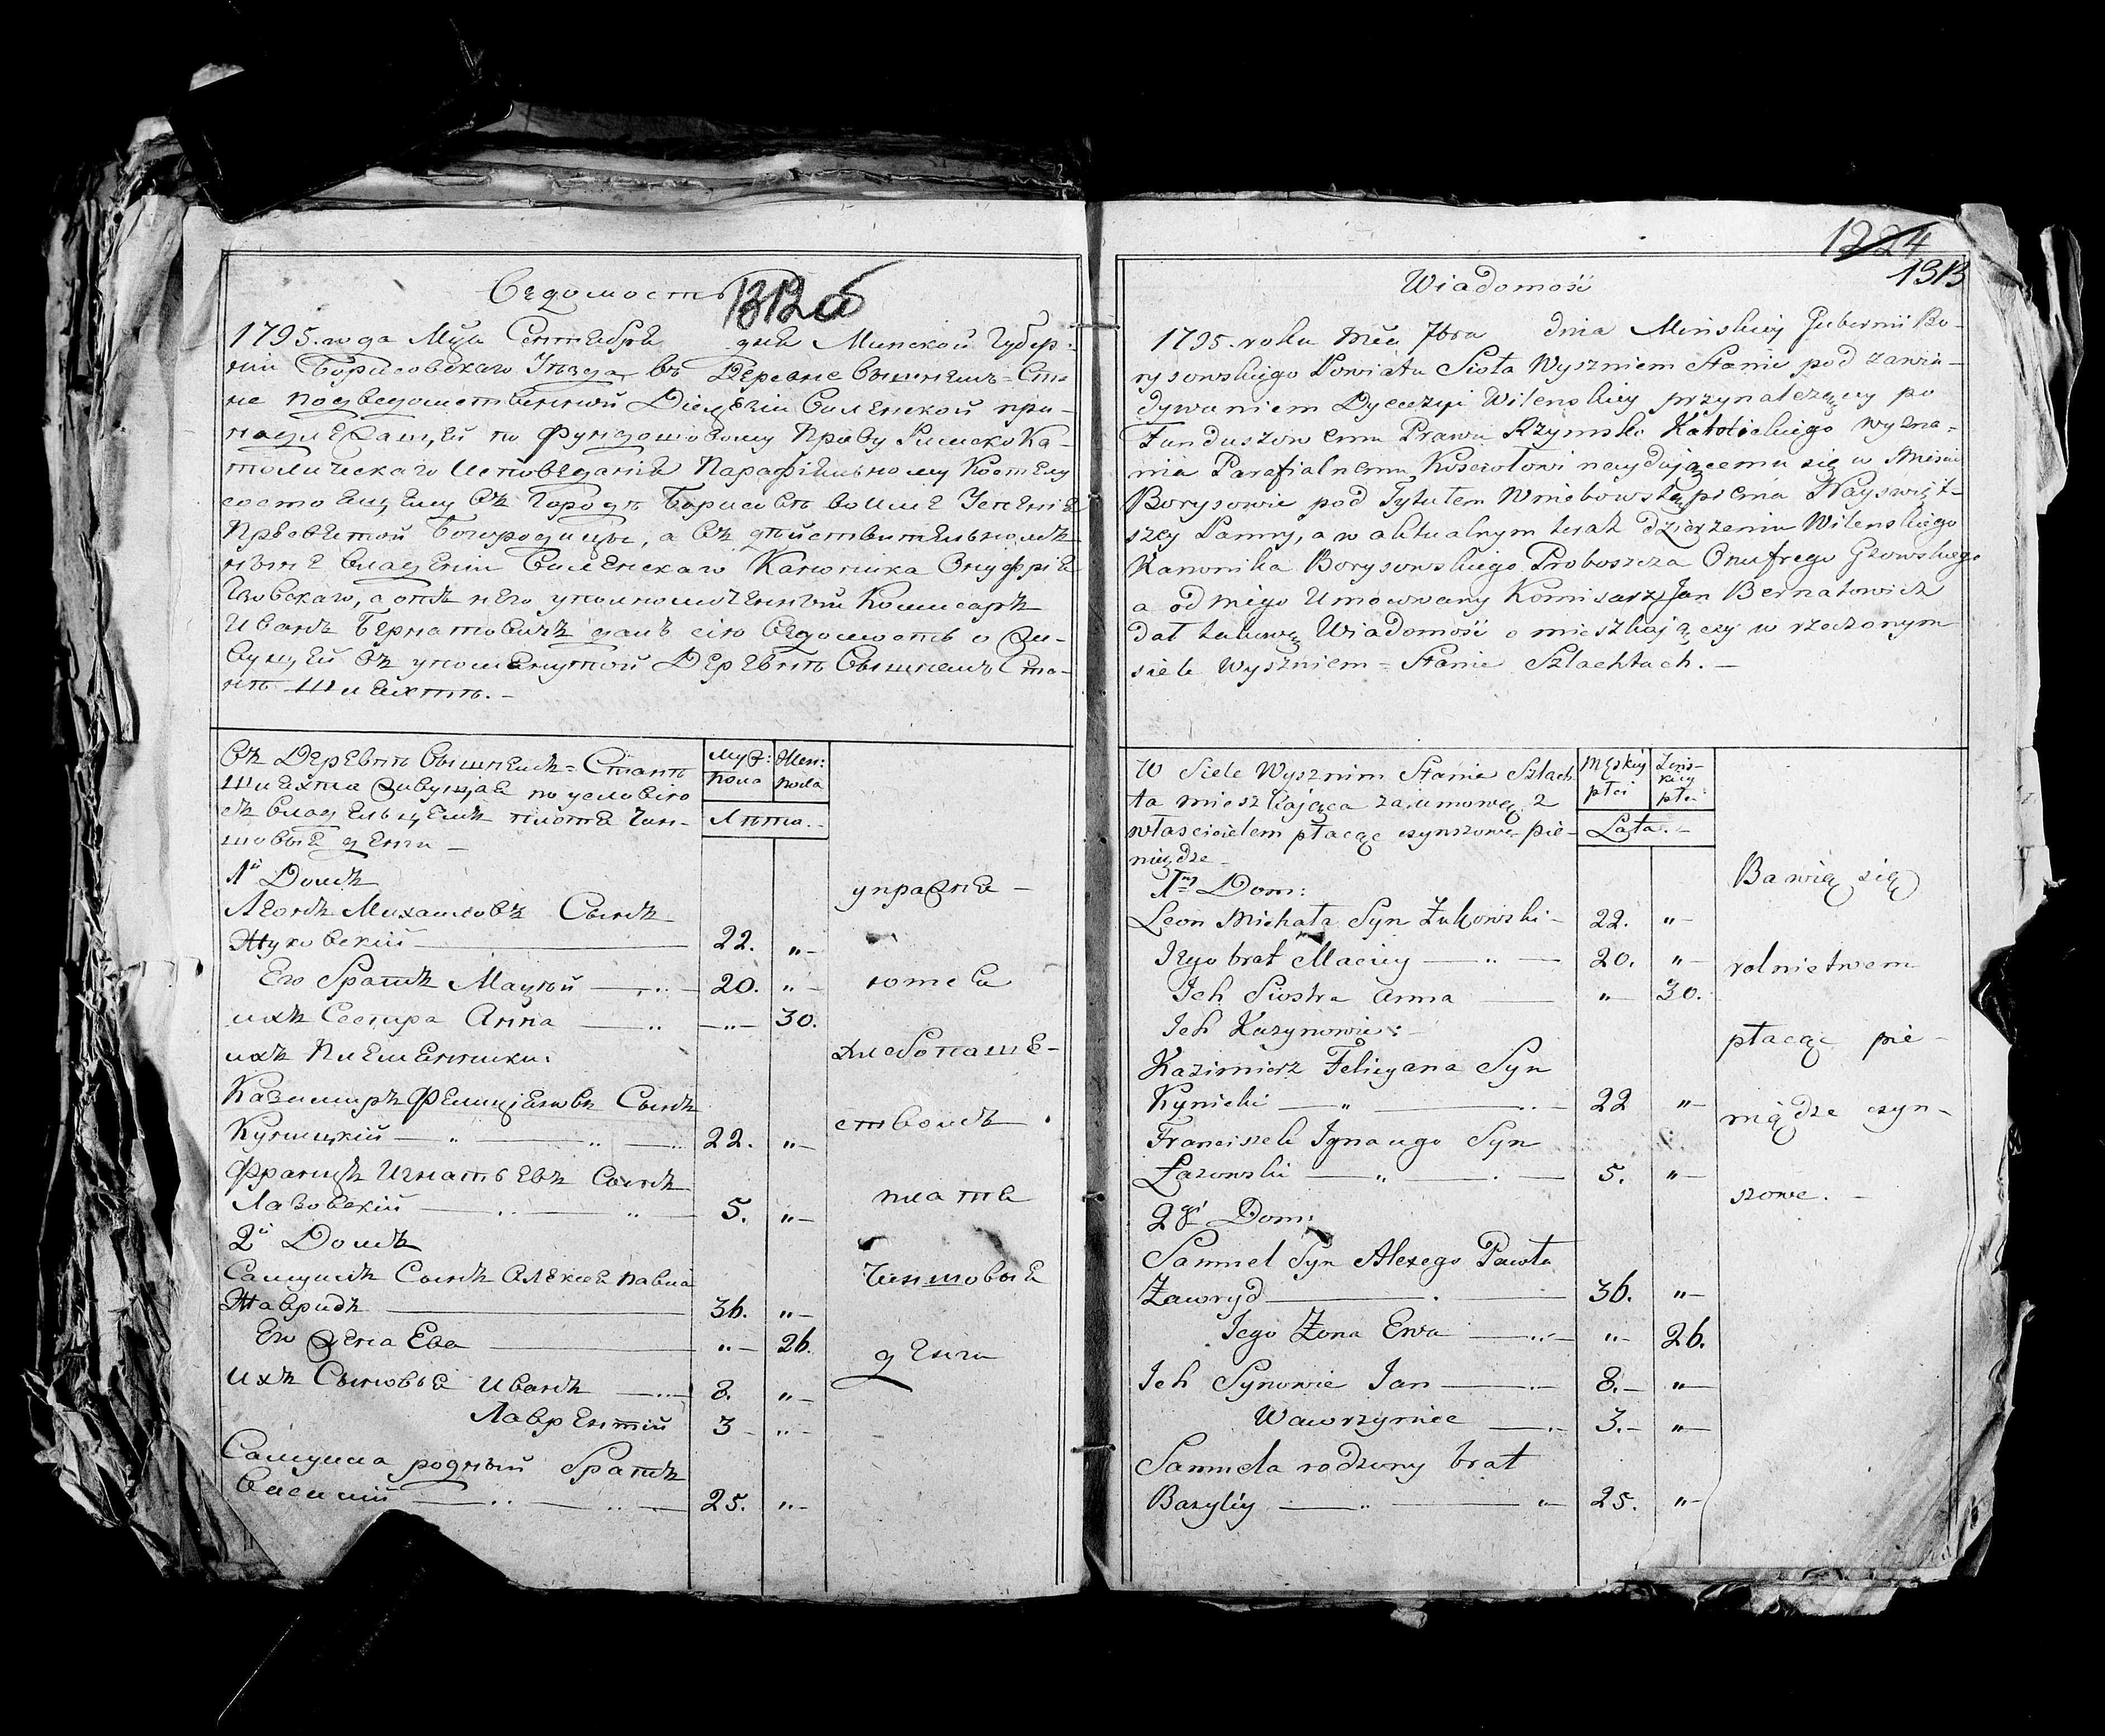 Ведомость
1312об
1795. года Мца Сентября дня Минской Губер:
нiи Борисовскаго Уезда въ Деревне Вышнемъ=Ста
не подведомственной Дiецезiи Виленской при-
надлежащей по Фундашовому Праву Римско Ка-
толическаго Исповеданiя Парафiяльному Костелу
состоящему въ Городѣ Борисовѣ во имя Успенiя
Пресвятой Богородицы, а въ дѣйствительномъ
нынѣ владенiи Виленскаго Каноника Онуфрiя
Гзовскаго, а отъ него уполномоченный Комисаръ
Иванъ Бернатовичъ далъ сiю Ведомость о жи-
вущей въ упомянутой Деревнѣ Вышнемъ Ста-
нѣ Шляхтѣ.-
Въ Деревнѣ Вышнемъ=Станѣ
Шляхта живущая по условiю
съ владельцемъ платя чин-
шовыя денги -
Муж: пола
Жен: пола
Лѣта.-
1й Домъ
Леонъ Михаиловъ Сынъ
Жуковскiй 22. „-
Его братъ Мацѣй 20. „-
ихъ Сестра Анна -„- 30.
ихъ племянники:
Казимиръ Фелицiяновъ Сынъ
Куницкiй 22. „-
Францъ Игнатьевъ Сынъ
Лазовскiй 5. „-
2й Домъ
Самуилъ Сынъ Алексея Павла
Жавридъ 36. „-
Его жена Ева „- 26.
ихъ Сыновья Иванъ 8. „-
Лаврентiй 3 - „-
Самуила родный братъ
Василiй 25. „-
упражня-
ются
хлебопаше-
ствомъ
платя
Чиншовыя
денги
1224
1313
Wiadomość
1795. roku mca 7bra dnia Minskiey Gubernii Bo-
rysowskiego Powiatu Sioła Wyszniem Stanie pod zawia-
dywaniem Dyecezyi Wilenskiey przynależącey po
Funduszowemu Prawu Rzymsko Katolickiego wyzna-
nia Parafialnemu Kosciołowi naydującemu się w Mieście
Borysowie pod Tytułem Wniebowstąpienia Nayswięt-
szey Panny, a w aktualnym teraz dzierżeniu Wilenskiego
Kanonika Borysowskiego Proboszcza Onufrego Gzowskiego
a od niego Umocowany Komisarz Jan Bernatowicz
dał takową Wiadomość o mieszkającey w rzeczonym
siele Wyszniem=Stanie Szlachtach.-
W Siele Wysznim Stanie Szlach
ta mieszkająca za umową z
właścicielem płacąc czynszowe pie-
niądze-
Męzkiey płci
Żeńs-kiey płci
Lata.-
1ny Dom:
Leon Michała Syn Żukowski- 22. „-
Jego brat Maciey 20. „-
Ich Siostra Anna „- 30.
Ich Kuzynowie:
Kazimierz Felicyana Syn
Kynicki 22 „-
Franciszek Ignacego Syn
Łazowski 5. „-
2gi Dom:
Samuel Syn Alexego Pawła
Żawryd 36. „-
Jego Żona Ewa „- 26.
Ich Synowie Jan 8.- „-
Wawrzyniec 3.- „-
Samuela rodzony brat
Bazyliy 25. „-
Bawią się
rolnictwem
płacąc pie-
niądze czyn-
szowe.-